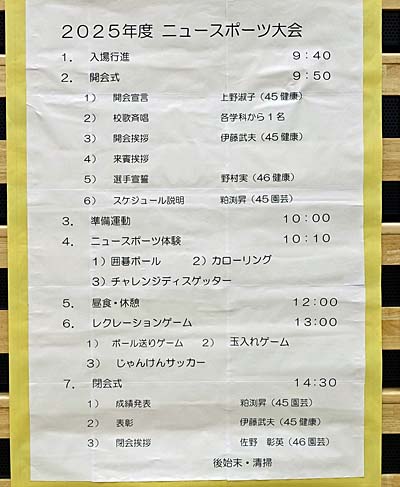 2025年度 ニュースポーツ大会
1. 入場行進 9:40
2. 開会式 9:50
1) 開会宣言 上野淑子(45健康)
2) 校歌斉唱 各学科から1名
3) 開会挨拶 伊藤武夫(45健康)
4) 来賓挨拶
5) 選手宣誓 野村実(46健康)
6) スケジュール説明 粕渕昇(45園芸)
3. 準備運動 10:00
4. ニュースポーツ体験 10:10
1)囲碁ボール 2)カローリング
3)チャレンジディスゲッター
5. 昼食・休憩 12:00
6. レクレーションゲーム 13:00
1) ボール送りゲーム 2) 玉入れゲーム
3) じゃんけんサッカー
7. 閉会式 14:30
1) 成績発表 粕渕昇(45園芸)
2) 表彰 伊藤武夫(45健康)
3) 閉会挨拶 佐野 彰英(46園芸)
後始末・清掃